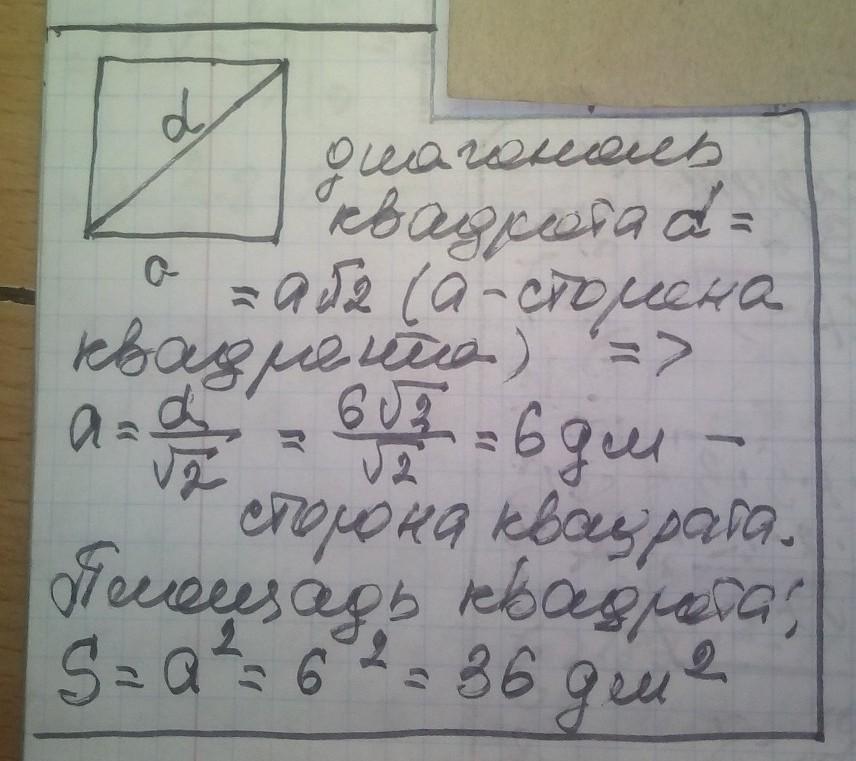 d
a
диагональ
квадрата d =
= a√2 (a - сторона
квадрата) =>
a = d/√2 = 6√2/√2 = 6 дм -
сторона квадрата.
Площадь квадрата:
S = a² = 6² = 36 дм²